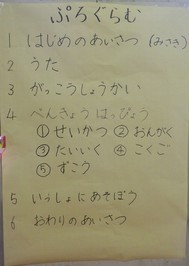 ぷろぐらむ
1 はじめのあいさつ (みさき)
2 うた
3 がっこうしょうかい
4 べんきょうはっぴょう
① せいかつ ② おんがく
③ たいいく ④ こくご
⑤ ずこう
5 いっしょにあそぼう
6 おわりのあいさつ